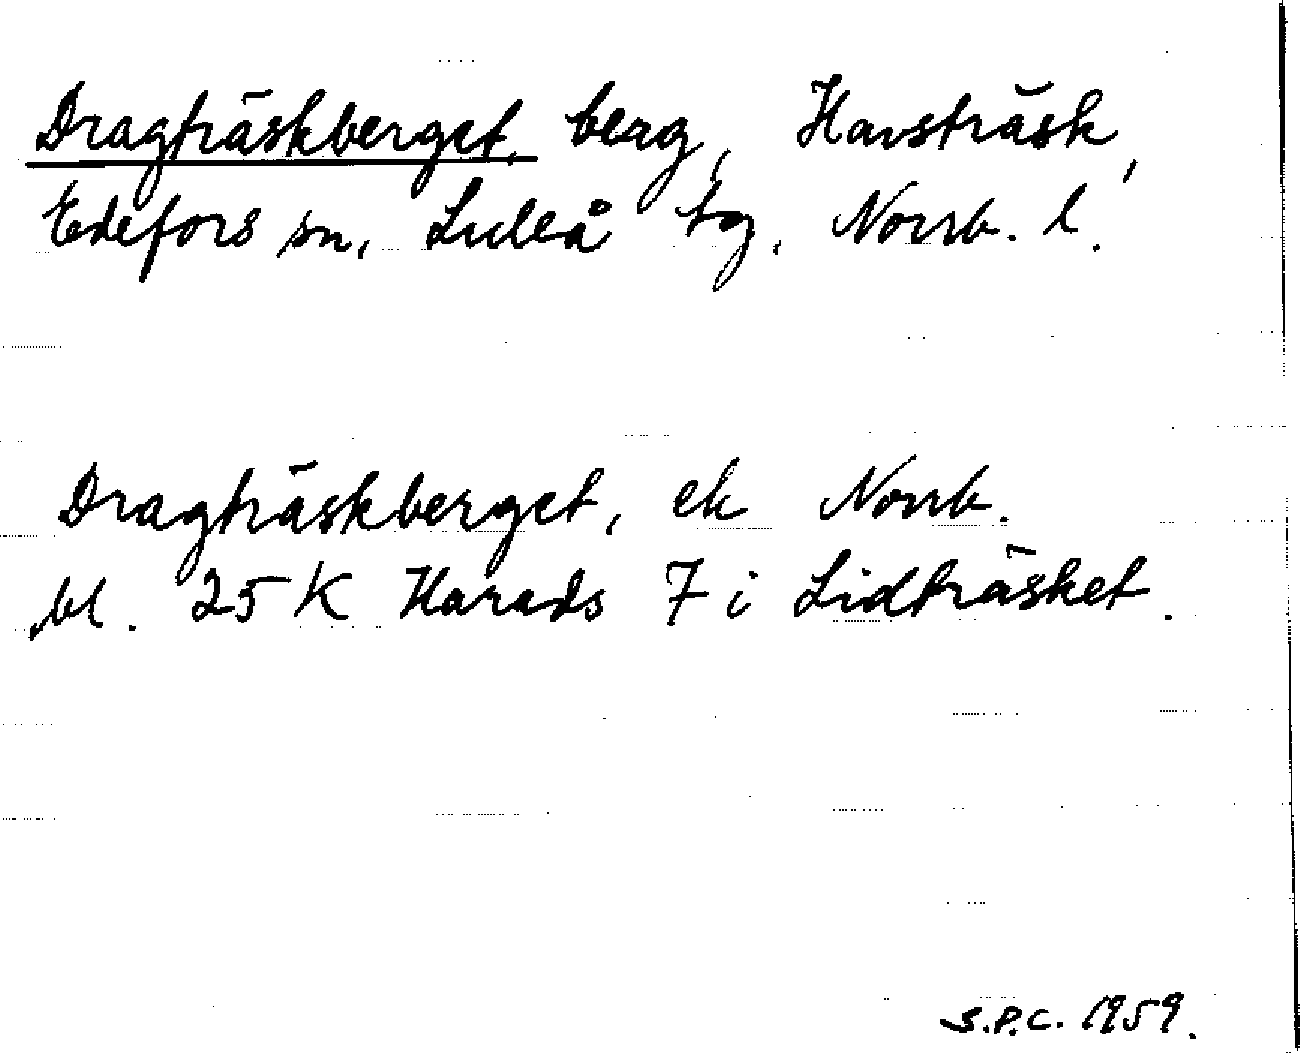 Dragträskberget, berg, Havsträsk,
Edefors sn, Luleå tg, Norrb. l.
Dragträskberget, ek Norrb.
bl. 25 K Harads 7 i Lidträsket.
S.P.C. 1959.